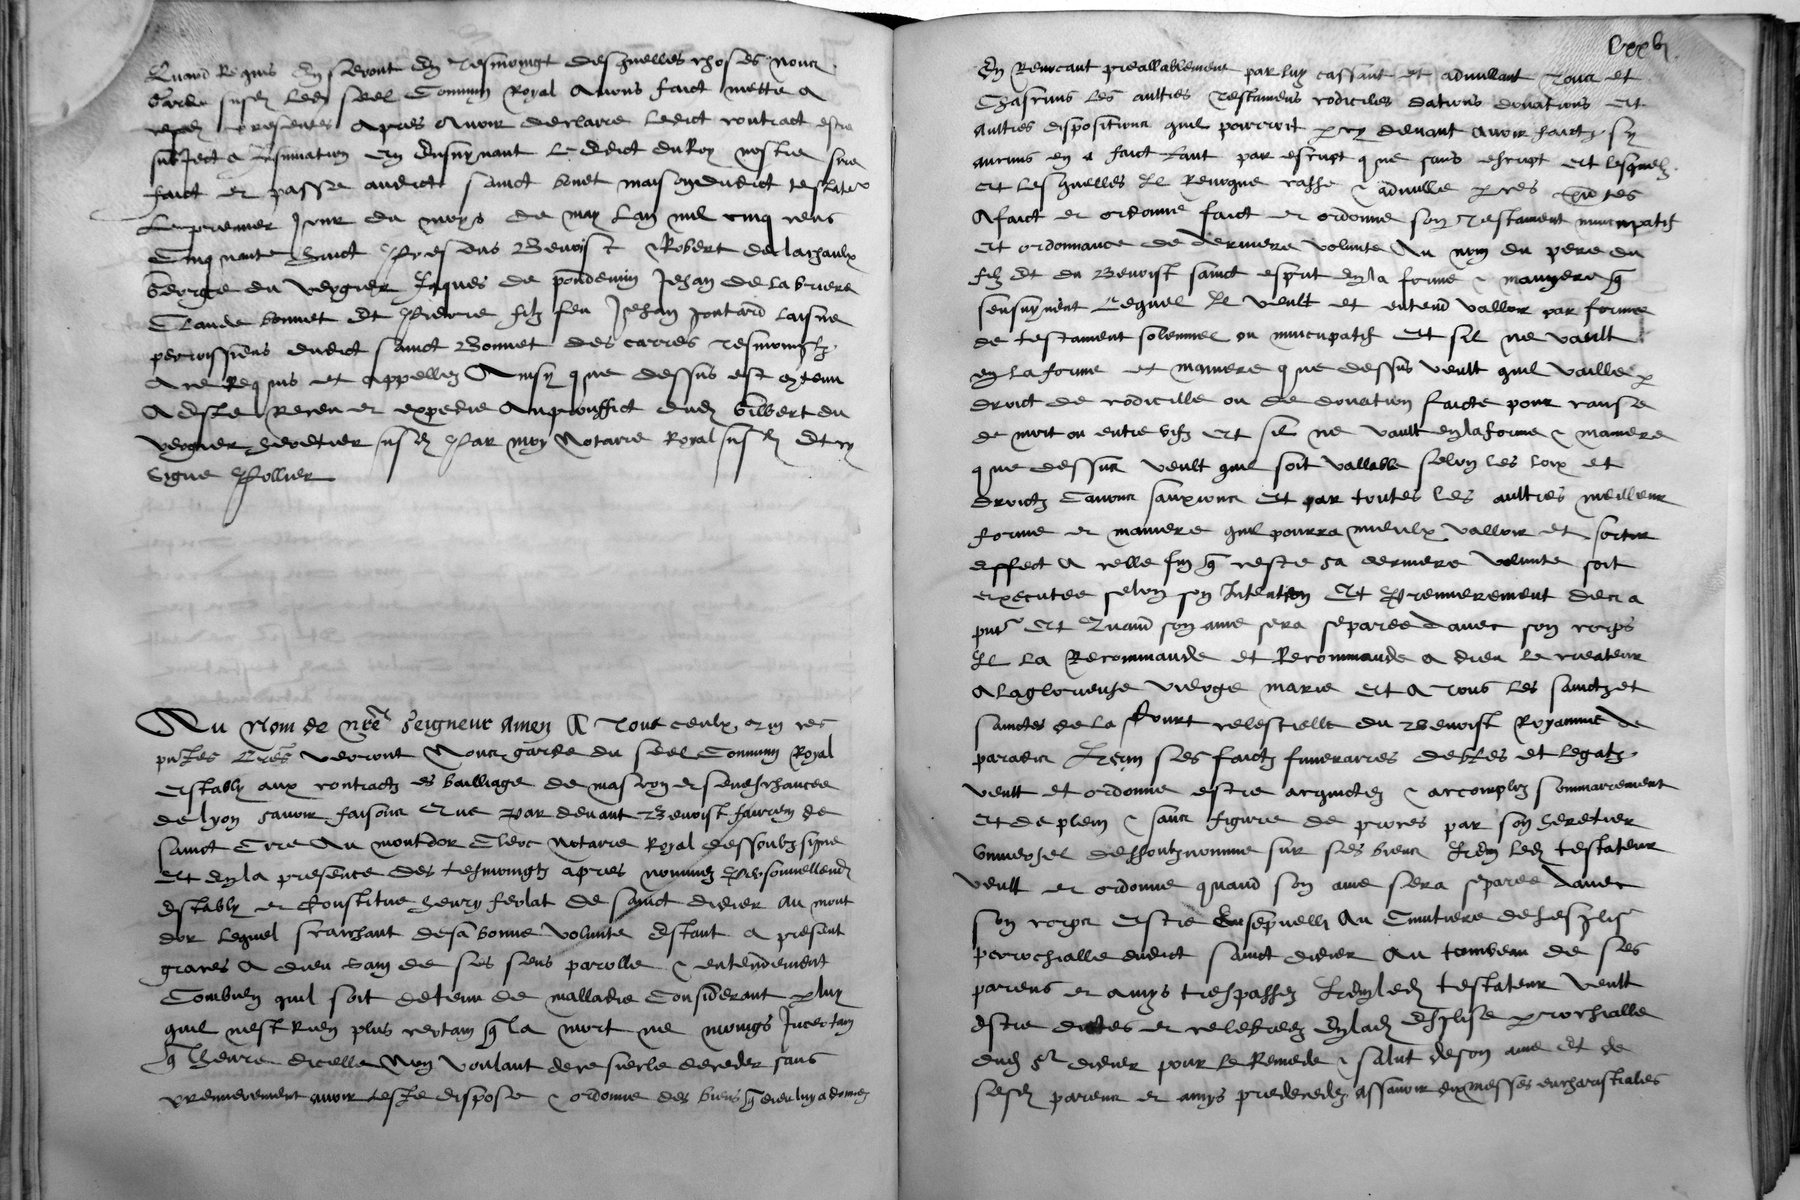 Quand Requis En seront En tesmoingt desquelles choses nous
Garde susd led seel Commun Royal Avons faict mettre a
presentes Apres Avoir declaire ledict contract estre
subject a Insinuation En Ensuyvant Ledict du Roy nostre sire
faict et passe audict sainct bonet maison dudict testateur
Le premier Jour du moys de may Lan mil cinq cens
Cinquante huict Presens Benoist Robert de lachaulx
George du vergier Jaques de pondemin Jehan de la bruere
Claude bonnet Et Pierre filz feu Jehan Jontard laisne
perroissiens dudict sainct Bonnet des carres tesmoingtz
A ce Requis et appellez Ainsy que dessus est contenu
A Este Receu et expedie Au prouffict dud Gilbert du
vergier heretier susd Par moy Notaire Royal susd Et cy
signe Pollier
Au Nom de nre Seigneur Amen A Tous ceulx qui ces
pntes Lres verront Nous garde du seel Commun Royal
estably aux contractz es bailliage de mascon et seneschaucee
de lyon scavoir faisons Que Par devant Benoist faurem de
sainct Cire Au montdor Clerc Notaire Royal dessoubz signe
Et En la presence des tesmoingtz apres nommez Personnellemt
Estably et Constitue henry ferlat de sainct didier Au mont
dor Lequel scaichant de sa bonne volunte Estant a present
graces A dieu sain de ses sens parolle & entendement
Combien quil soit detenu de malladie Considerant par luy
quil nest Rien plus certain q la mort ne moings Incertain
q lheure dicelle Non voulant de ce siecle deceder sans
premierement avoir teste dispose & ordonne des biens q dieu luy a donnez
Lxxvi
En Revocant preallablement par luy cassant et adnullant tous et
Chascuns les aultres testamens codicilles dations donations et
aultres dispositions quil pourroit par cy devant Avoir faict sy
aucuns en a faict tant par escript que sans escript et lesquelz
Et lesquelles Il Revoque casse & adnulle par ces pntes
A faict et ordonne faict et ordonne son testament nuncupatif
Et ordonnance de derniere volunte Au nom du pere du
filz Et du Benoist sainct esprit En la forme & maniere q
sensuyvent Lequel Il veult et entend valloir par forme
de testament solennel ou nuncupatif Et sil ne vault
en la forme et maniere que dessus veult quil vaille par
droict de codicille ou de donation faicte pour cause
de mort ou entre vifz Et sil ne vault en la forme & maniere
que dessus veult quil soit vallable selon les loix et
droictz Canons sanxions Et par toutes les aultres meilleur
forme et maniere quil pourra mieulx valloir et sortir
effect A celle fin q ceste sa derniere volunte soit
executee selon son Intention Et Premierement des a
pnt Et Quand son ame sera separee davec son corps
Il La Recommande et Recommande a dieu le createur
A la glorieuse vierge marie Et A tous les sainctz et
sainctes de la Court celestielle du Benoist Royaume de
paradis Item ses faictz funerarres debtes et legatz
veult et ordonne estre acquictez & accomplis sommairement
Et de plein & sans figure de proces par son heretier
universel dessoubz nomme sur ses biens Item led testateur
veult et ordonne quand son ame sera separee davec
son corps Estre Ensepvelli Au Cimitiere de lesglise
perrochialle dudict sainct didier Au tombeau de ses
parens et amys trespassez Item led testateur veult
Estre dictes et celebrees En lad Esglise parrochialle
dud St didier pour le Remede & salut de son ame Et de
sesd parens et amys predecedez Assavoir dix messes eucharistiales